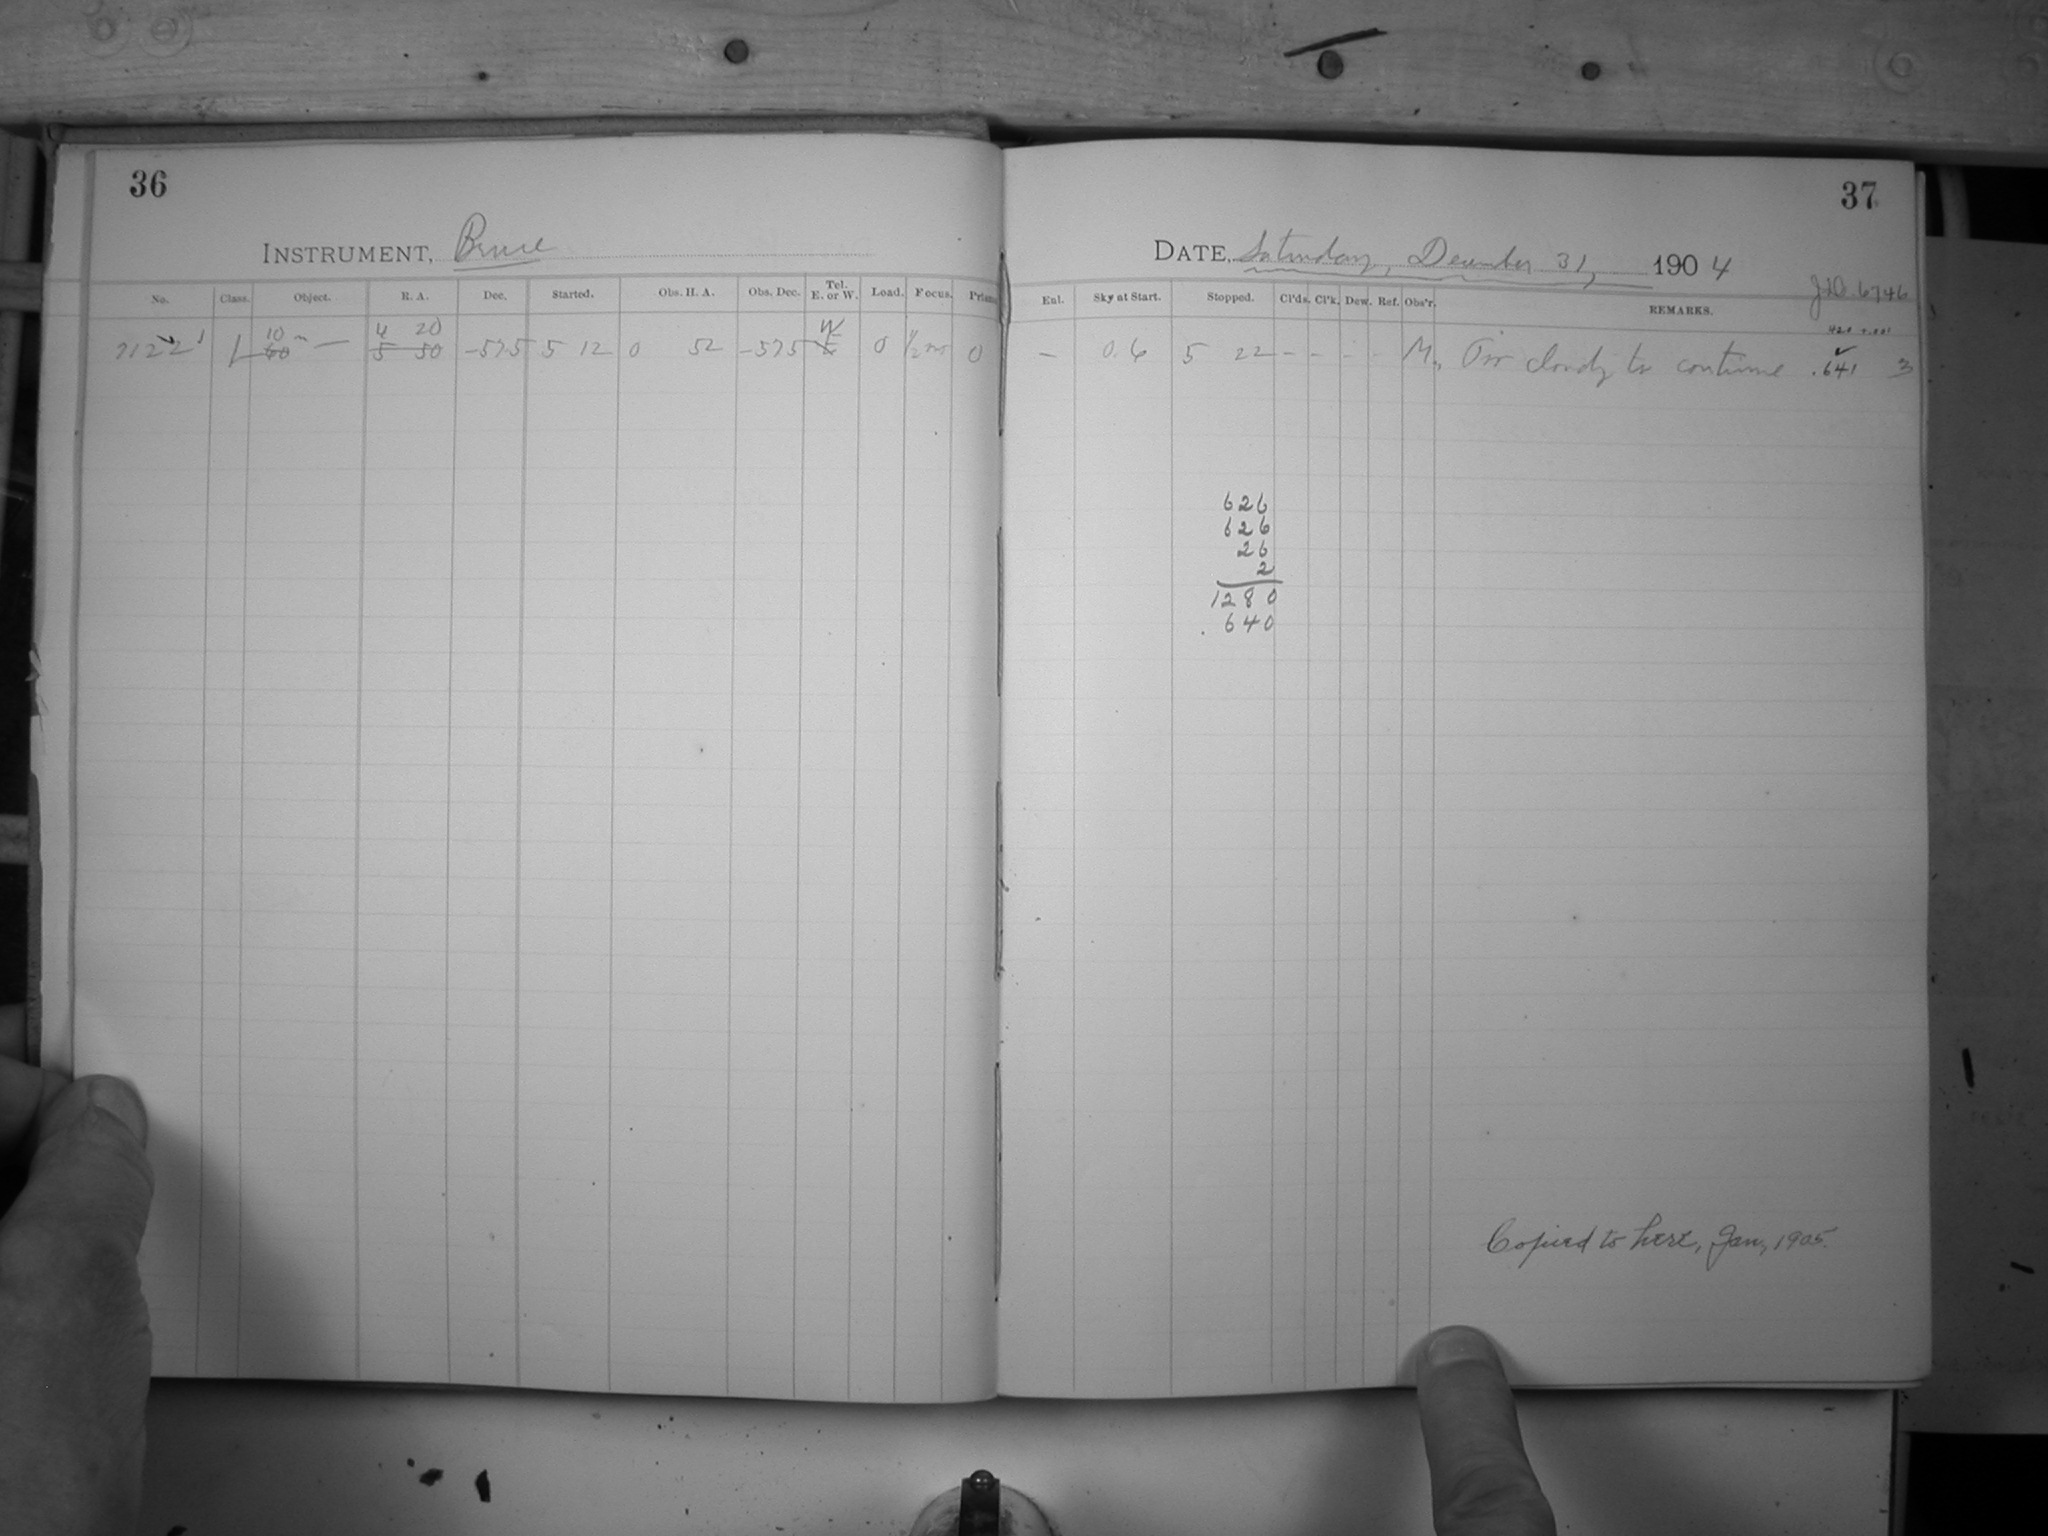 36
INSTRUMENT, Bruce
No. Class. Object. R. A. Dec. Started. Obs. H. A. Obs. Dec. Tel. E. or W. Load. Focus. Prism
10 4 20 W
7122 L 60 m — 5 50 -57.5 5 12 0 52 -57.5 E 0 0
37
DATE, Saturday, December 31, 1904
J.D. 6746
Eal. Sky at Start. Stopped. Cl'ds. Cl'k. Dew. Ref. Obs'r. REMARKS.
— 0.6 5 22 - - - - M. Too cloudy to continue .641 3
626
626
26
2
1280
.640
Copied to here, Jan, 1905.